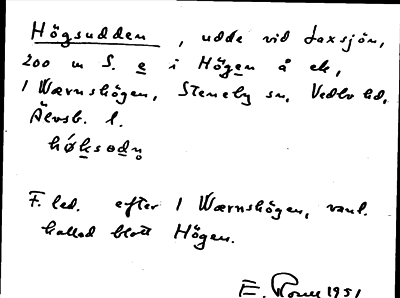 Högsudden, udde vid Laxsjön,
200 m S. e i Högen å ek,
1 Wærnshögen, Steneby sn, Vedbo hd,
Älvsb. l.
hǿksɵdn̥
F. led. efter 1 Wærnshögen, vanl.
kallad blott Högen.
E. 1951